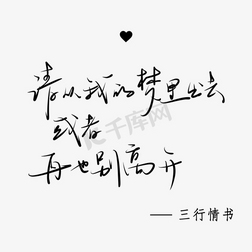 请从我的梦里出去
或者
再也别离开
—— 三行情书
千库网